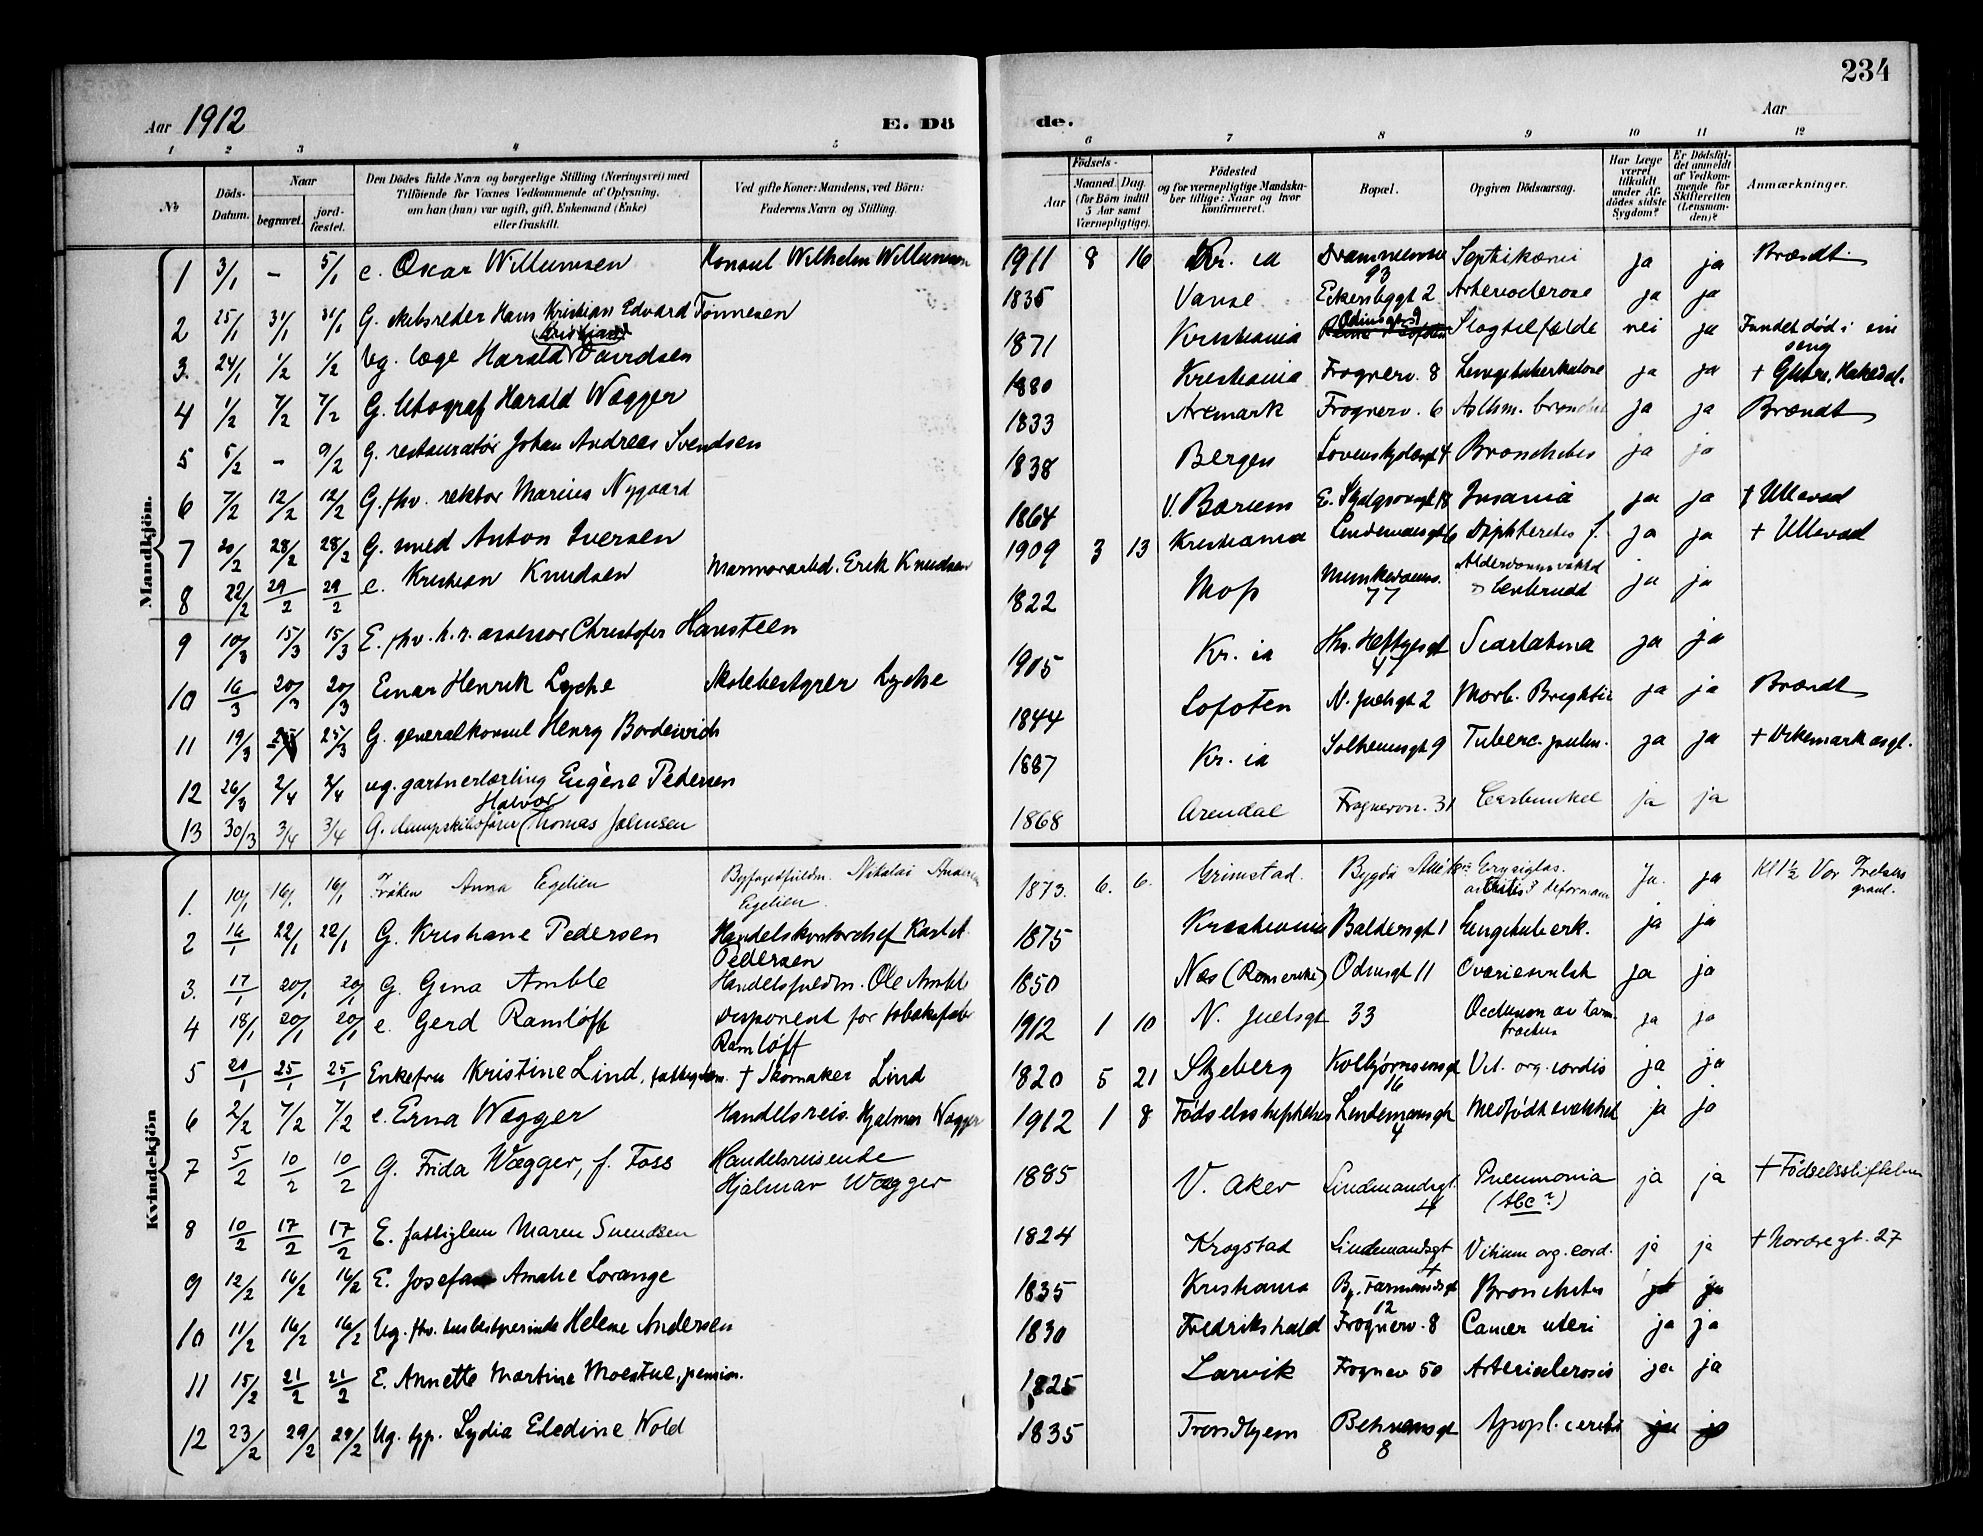 234
Aar 1912
E. Dö
de.
Aar
1 2 3 4 5 6 7 8 9 10 11 12
No
Döds-Datum.
Naar
begravet.
jord-fæstet.
Den Dödes fulde Navn og borgerlige Stilling (Næringsvei) med
Tilföiende for Voxnes Vedkommende af Oplysning,
om han (hun) var ugift, gift, Enkemand (Enke)
eller fraskilt.
Ved gifte Koner: Mandens, ved Börn:
Faderens Navn og Stilling.
Födsels-
Aar
Maaned. Dag.
(for Börn indtil
5 Aar samt
Værnepligtige).
Födested
og for værnepligtige Mandska-
ber tillige: Naar og hvor
konfirmeret.
Bopæl.
Opgiven Dödsaarsag.
Har Læge
været
tilkaldt
under Af-
dödes sidste
Sygdom?
Er Dödsfal-
det anmeldt
af Vedkom-
mende for
Skifteretten
(Lensman-
den)?
Anmærkninger.
Mandkjön.
1 3/1 – 5/1 c. Oscar Willumsen Konsul Wilhelm Willumsen 1911 8 16 Kr. ia 93 Septikæmi ja ja Brændt
2 25/1 31/1 31/1 G. skibsreder Hans Kristian Edvard Tönnesen 1835 Vanse Eckersbggt 2 ja ja
3. 24/1 1/2 1/2 Ug. læge Harald Davidsen 1871 Kristiania Slagtilfælde nei ja Fundet död i sin
seng
4 1/2 7/2 7/2 G. litograf Harald Wægger 1880 Kristiania Frognerv. 8 Lungetuberkulose ja ja + Glitre, Hakedal.
5 5/2 – 9/2 G. restauratör Johan Andreas Svendsen 1833 Aremark Frognerv. 6 Asthm. ja ja Brændt
6 7/2 12/2 12/2 G. fhv. rektor Marius Nygaard 1838 Bergen Bronchitis ja ja
7 20/2 28/2 28/2 G. smed Anton Iversen 1864 V. Bærum Insania ja ja + Ullevaal
8 22/2 29/2 29/2 c. Kristian Knudsen Marmorarbd. Erik Knudsen 1909 3 13 Kristiania Lindemansgt 6 Diphteritis f. ja ja + Ullevaal
9 10/3 15/3 15/3 E. fhv. h. r. assessor Christofer Hansteen 1822 Moss Munkedamsv.
77 ja ja
10 16/3 20/3 20/3 Einar Henrik Lyche Skolebestyrer Lyche 1905 Kr. ia Ths. Heftyesgt
47 Scarlatina ja ja
11 19/3 25/3 G. generalkonsul Henry Bordewich 1844 Lofoten N. Juelsgt 2 Morb. Brightii ja ja Brændt
12 26/3 2/4 2/4 ug. gartnerlærling Eugène Pedersen 1887 Kr. ia Solheimsgt 9 Tuberc. pulm. ja ja + Dikemark asyl.
Halvor
13 30/3 3/4 3/4 G. dampskibsförer Thomas Johnsen 1868 Arendal Frognervn. 31 Carbunkel ja ja
Kvindekjön
1. 10/1 16/1 16/1 Fröken Anna Egelien Byfogedfuldm. Nikolai
Egelien. 1873. 6. 6. Grimstad. Bygdö Allé Erysiglas.
deformans Ja. ja Kl 1½ Vor Frelsers
gravl.
2 16/1 22/1 22/1 G. Kristiane Pedersen Handelskontorchef
Pedersen 1875 Kristiania Baldersgt 1 Lungetuberk. ja ja
3. 17/1 20/1 20/1 G. Gina Amble Handelsfuldm. Ole Amble 1850 Næs (Romerike) Odinsgt 11 Ovariesvulst ja ja
4 18/1 20/1 20/1 c. Gerd Ramlöff Disponent for tobaksfabr
Ramlöff 1912 1 10 N. Juelsgt 33 Occlusion av tarm-
tractus ja ja
5 21/1 25/1 25/1 Enkefru Kristine Lind, fattiglem. + Skomaker Lind 1820 5 21 Skjeberg Kolbjörnsensgt
16 Vit. org. cordis ja ja
6 2/2 7/2 7/2 c. Erna Wægger Handelsreis. Hjalmar Wægger 1912 1 8 Födselsstiftelsen Lindemansgt
4 Medfödt svakhet ja ja
7 5/2 10/2 10/2 G. Frida Wægger, f. Foss Handelsreisende
Hjalmar Wægger 1885 V. Aker Lindemansgt
4 Pneumonia
(Abc?) ja ja + Födselsstiftelsen
8 10/2 17/2 17/2 E. fattiglem Maren Svendsen 1824 Krogstad Lindemansgt
4 Vitium org. cord. ja ja + Nordregt. 27
9 12/2 16/2 16/2 E. Josefa Amalie Lorange 1835 Kristiania
12 Bronchitis ja ja
10 11/2 16/2 16/2 Ug. fhv. husbestyrerinde Helene Andersen 1830 Fredrikshald Frognerv. 8 Cancer uteri ja ja
11 15/2 21/2 21/2 E. Annette Martine Moestue, pension. 1825 Larvik Frognerv 50 ja ja
12 23/2 29/2 29/2 Ug. Lydia Eledine Wold 1835 Trondhjem Behrensgt
8 Apopl. cerebri ja ja